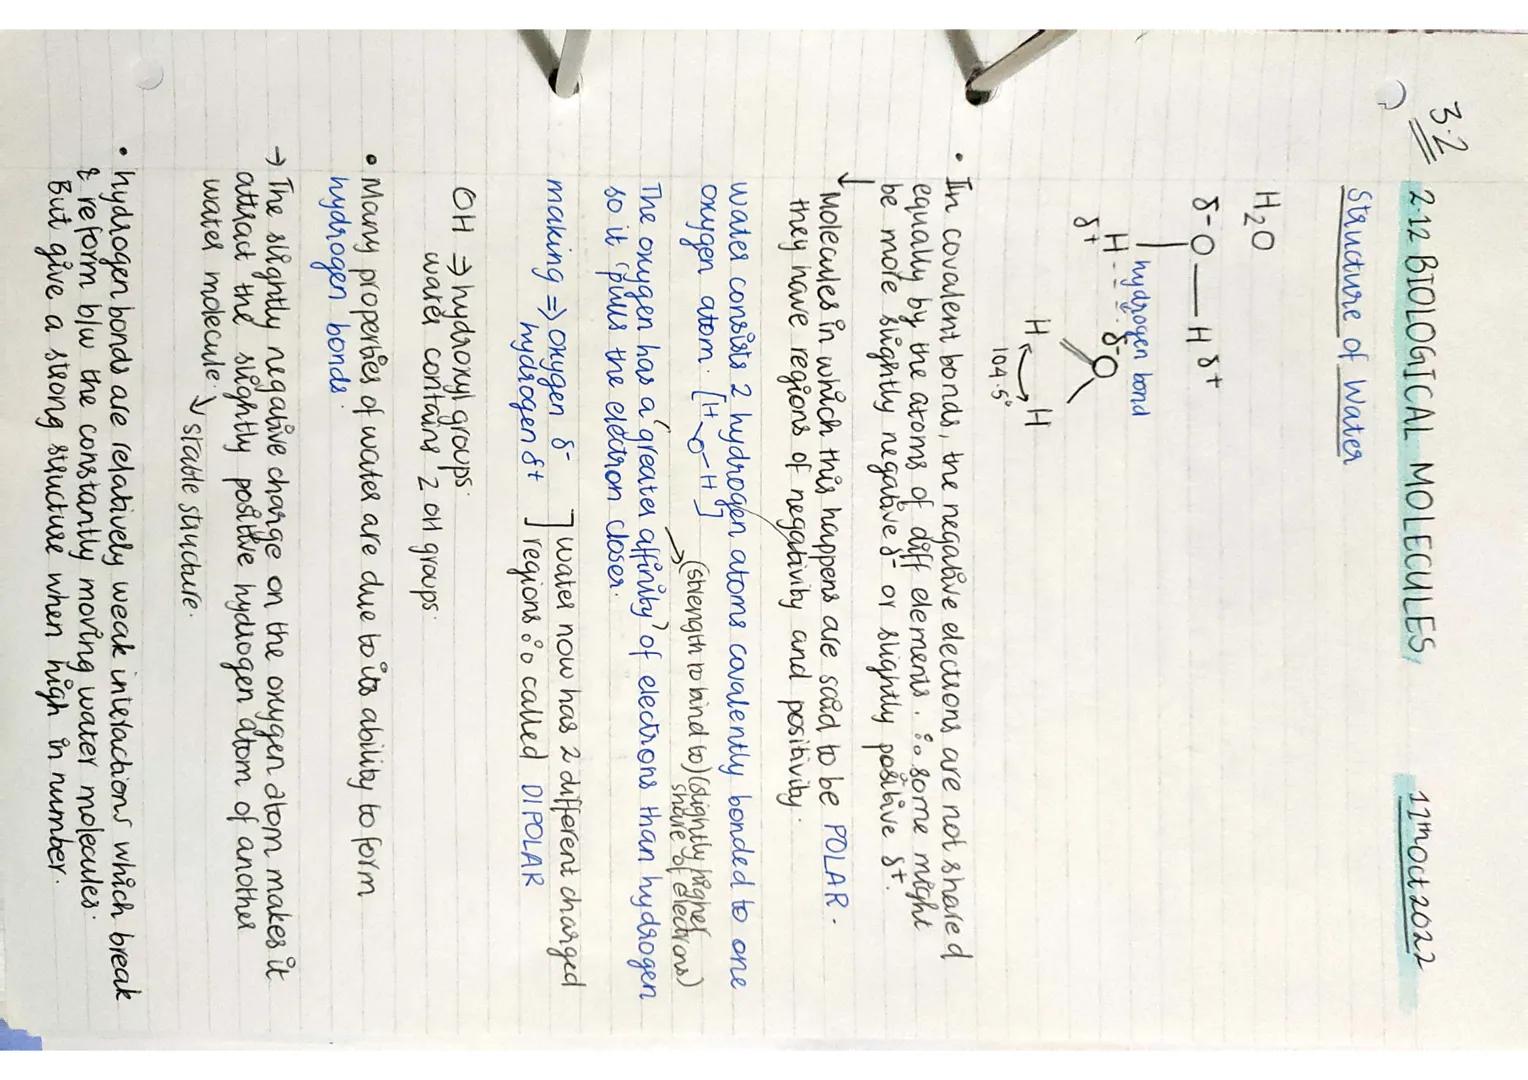 3.2
2.1.2 BIOLOGICAL MOLECULES, 11th Oct 2022
Structure of Water
H2O
δ- O — H δ+
| hydrogen bond
H - - - δ- O
δ+
H H
104.5°
• In covalent bonds, the negative electrons are not shared
equally by the atoms of diff elements. ∴ some might
be more slightly negative δ- or slightly positive δ+.
↓ Molecules in which this happens are said to be POLAR.
they have regions of negativity and positivity.
water consists 2 hydrogen atoms covalently bonded to one
oxygen atom. [H-O-H]
→ (strength to bind to) (slightly higher
share of electrons)
The oxygen has a 'greater affinity' of electrons than hydrogen
so it pulls the electron closer.
making ⇒ oxygen δ- ] water now has 2 different charged
hydrogen δ+ ] regions ∴ called DIPOLAR
OH ⇒ hydroxyl groups.
water contains 2 OH groups.
• Many properties of water are due to its ability to form
hydrogen bonds.
→ The slightly negative charge on the oxygen atom makes it
attract the slightly positive hydrogen atom of another
water molecule.
↳ stable structure.
• hydrogen bonds are relatively weak interactions which break
& reform b/w the constantly moving water molecules.
But give a strong structure when high in number.